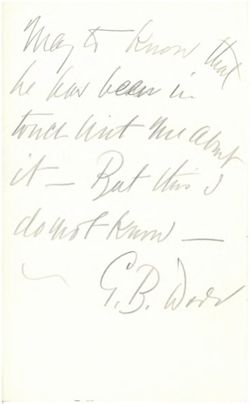 May to know that
he has been in
touch with me about
it — But this I
do not know —
G.B. Dorr